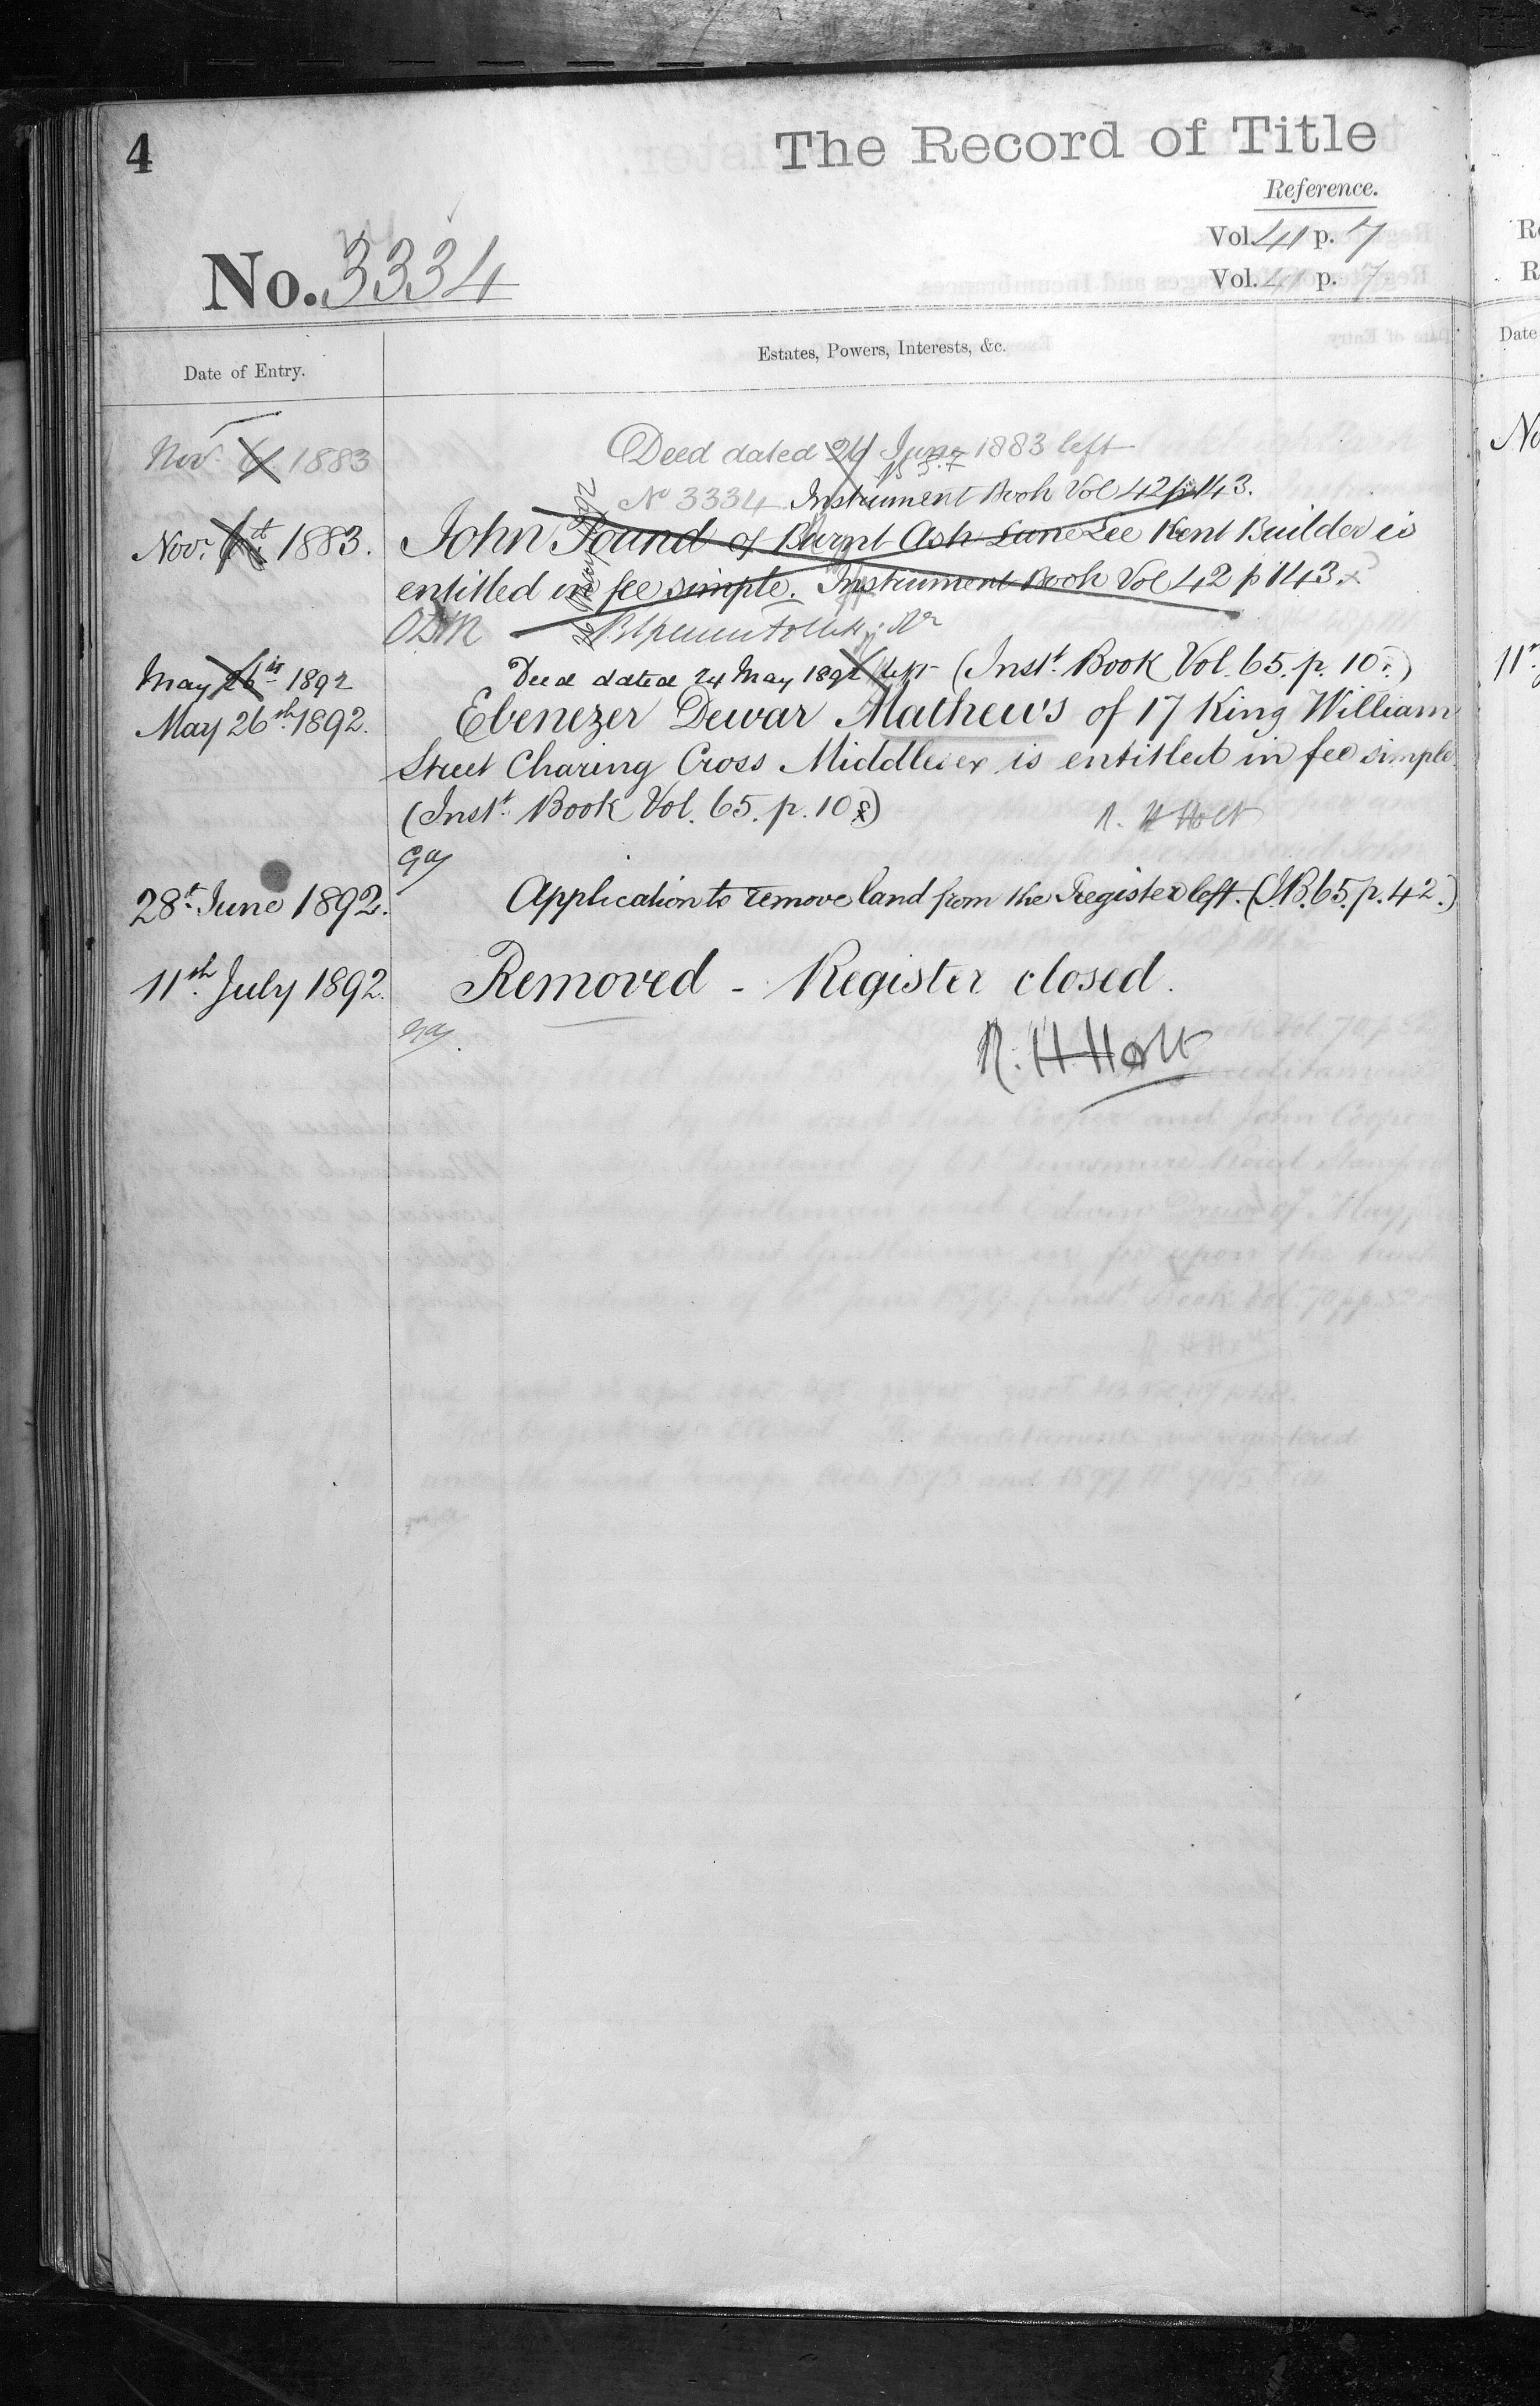 4
The Record of Title
Reference.
Vol. 41 p. 7
No. 3334
Vol. 41 p. 7
Date of Entry.
Estates, Powers, Interests, &c.
Nov. 6 1883
Deed dated 24 June 1883 left
No 3334 Instrument Book Vol 42 p 143.
Novr. 6th 1883.
John Pound of Burnt Ash Lane Lee Kent Builder is
entitled in fee simple. Instrument Book Vol 42 p 143.
May 26th 1892
Deed dated 24 May 1892 left (Instt. Book Vol. 65. p. 10.)
May 26th 1892.
Ebenezer Dewar Mathews of 17 King William
Street Charing Cross Middlesex is entitled in fee simple
(Instt. Book Vol. 65. p. 10)
R. H Holt
28th June 1892.
Application to remove land from the Register left. (I.B. 65. p. 42.)
11th July 1892.
Removed - Register closed.
R. H. Holt
Date